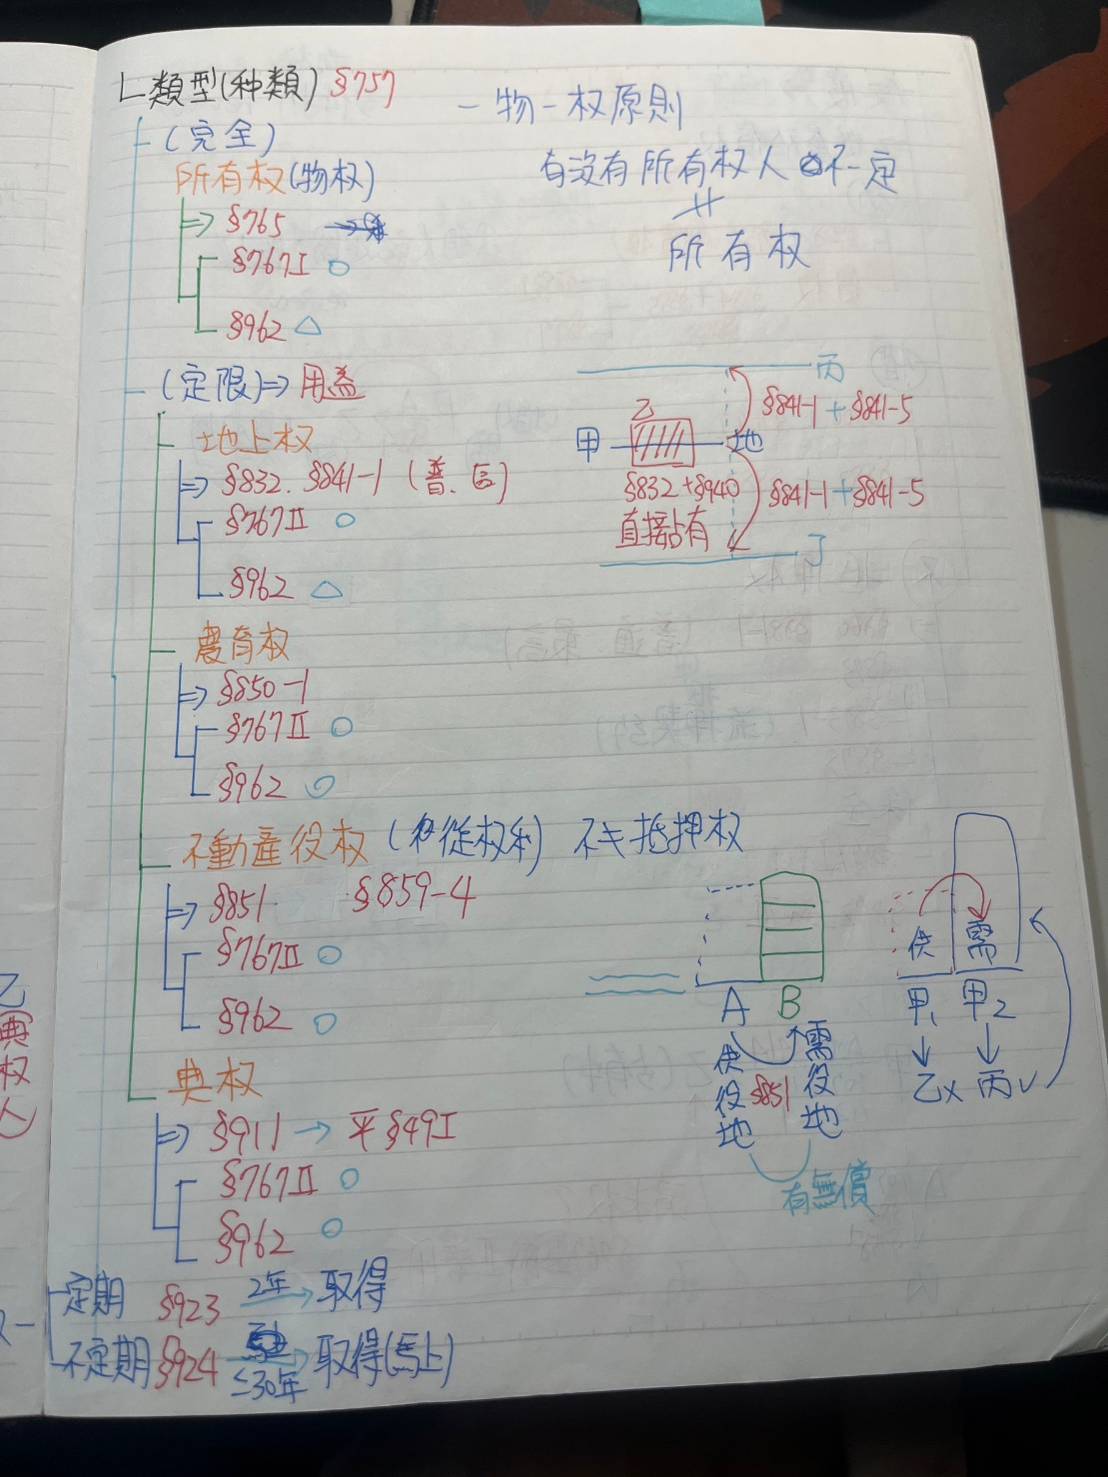 類型(种類) §757
一物一权原則
(完全)
有沒有所有权人 不一定
所有权(物权)
所有权
§765
§767I ○
§962 △
(定限)⇒用益
地上权
⇒ §832. §841-1 (普、区)
§767II ○
§962 △
丙
乙
§841-1 + §841-5
甲 地
§832+§940
§841-1+§841-5
直接占有
丁
農育权
⇒ §850-1
§767II ○
§962 ○
不動產役权 (从從权利) 抵押权
⇒ §851 §859-4
§767II ○
§962 ○
A B
供役地
需役地
§851
有無償
供 需
甲1 甲2
乙x 丙✓
典权
⇒ §911 → 平§49I
§767II ○
§962 ○
定期 §923 2年→ 取得
不定期 §924 ≤30年→ 取得(馬上)
乙
典
权
人